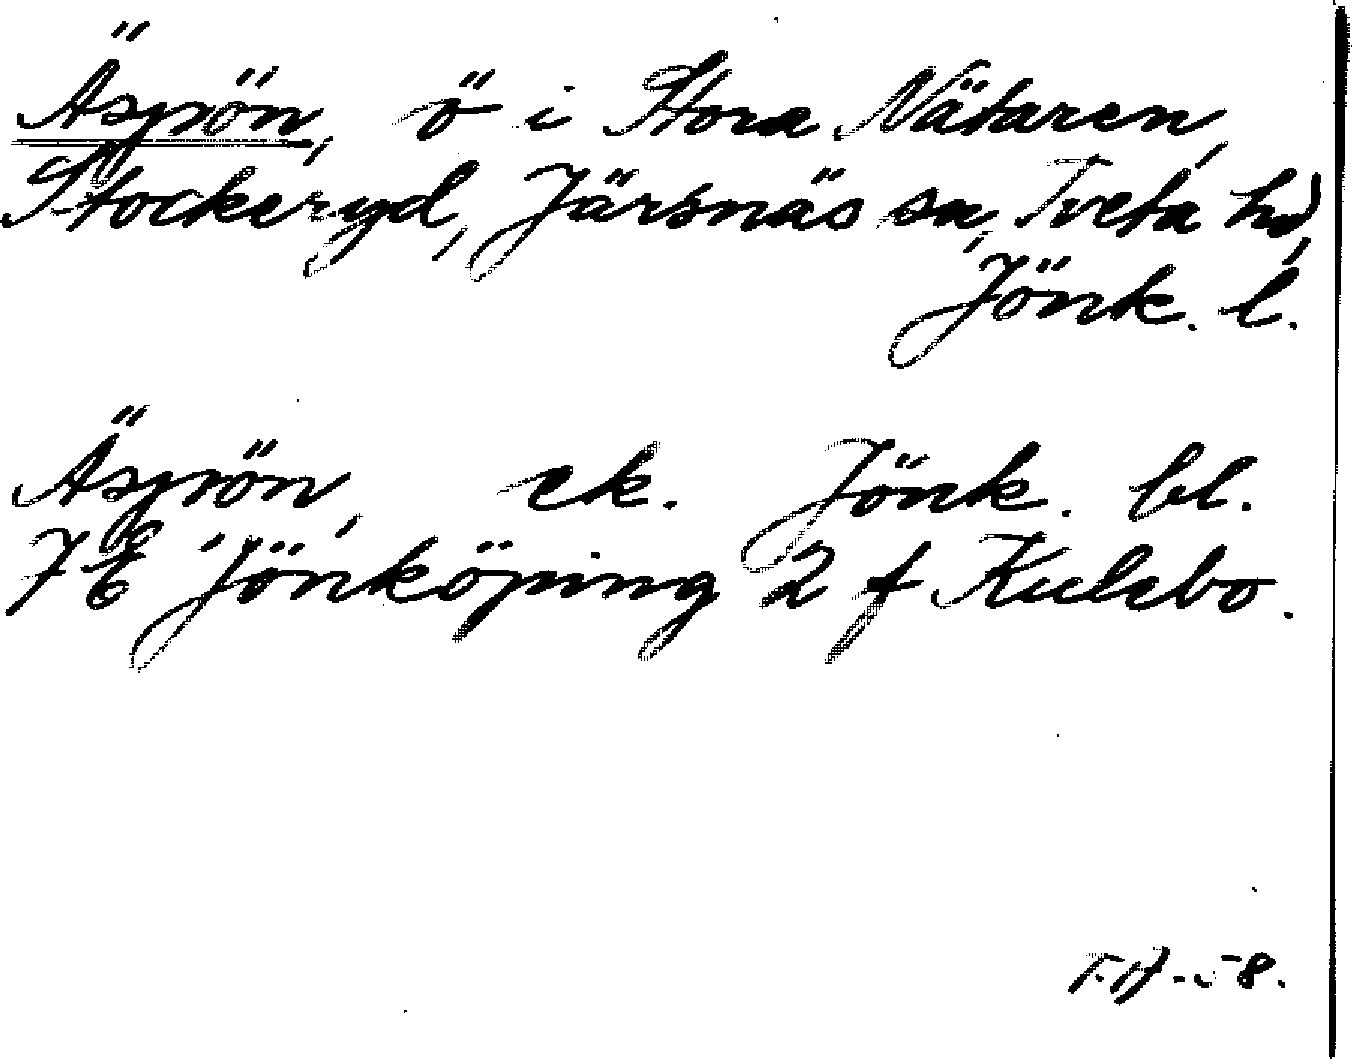 Äspön, ö i Stora Nätaren,
Stockeryd, Järsnäs sn, Tveta hd,
Jönk. l.
Äspön, ek. Jönk. bl.
7 E Jönköping 2 f Kulebo.
T.A-58.